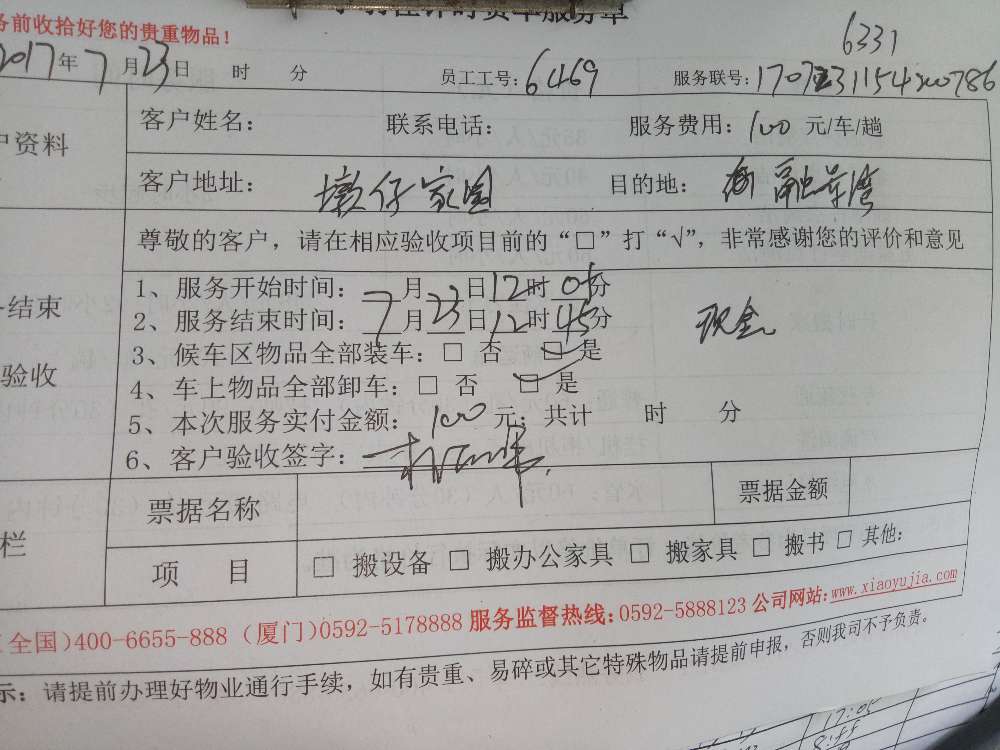 务前收拾好您的贵重物品!
6331
2017年7月23日 时 分 员工工号:6469 服务联号:
户资料
客户姓名: 联系电话: 服务费用:100 元/车/趟
客户地址: 墩仔家园 目的地: 融景湾
尊敬的客户，请在相应验收项目前的“□”打“√”，非常感谢您的评价和意见
结束
验收
1、服务开始时间: 7月23日12时 分
2、服务结束时间: 7月23日12时45分 现金
3、候车区物品全部装车:□ 否 ☑ 是
4、车上物品全部卸车:□ 否 ☑ 是
5、本次服务实付金额: 100 元; 共计 时 分
6、客户验收签字:
栏
票据名称 票据金额
项 目 □ 搬设备 □ 搬办公家具 □ 搬家具 □ 搬书 □ 其他:
全国)400-6655-888 (厦门)0592-5178888 服务监督热线:0592-5888123 公司网站:www.xiaoyujia.com
示: 请提前办理好物业通行手续，如有贵重、易碎或其它特殊物品请提前申报，否则我司不予负责。
17:05